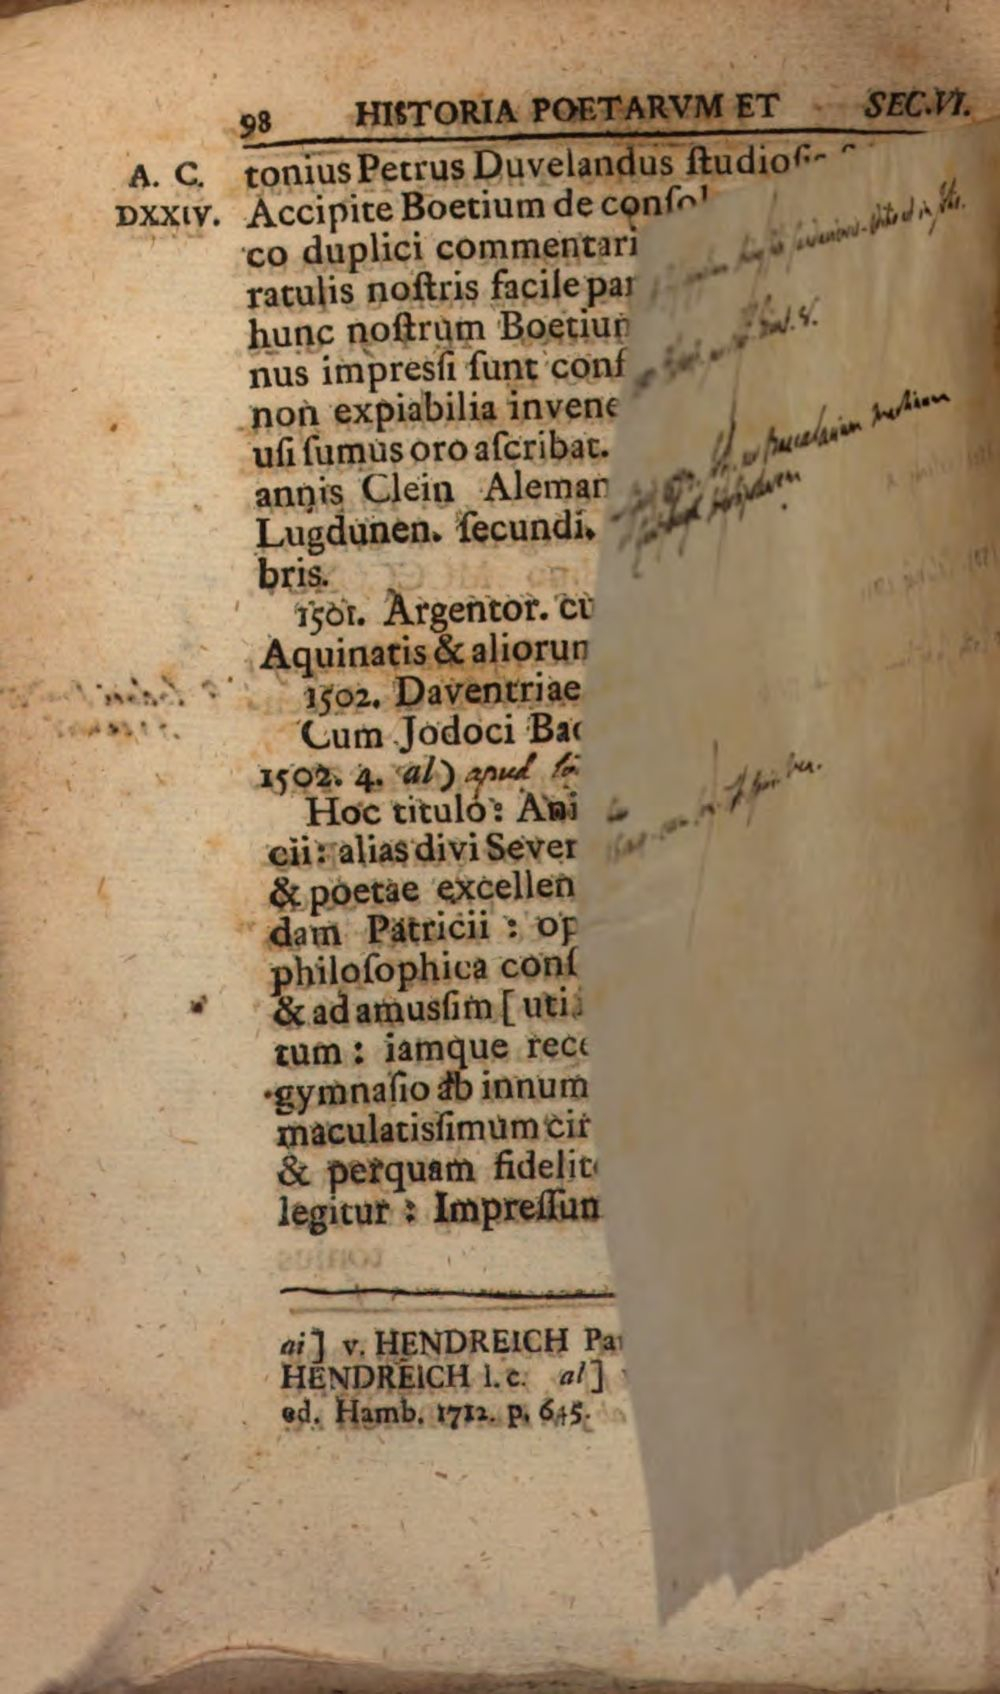 98 HISTORIA POETARVM ET SEC.VI.
A. C. tonius Petrus Duvelandus ſtudioſ
DXXIV. Accipite Boetium de conſol
co duplici commentari
ratulis noſtris facile par
hunc noſtrum Boetiun
nus impresſi ſunt conſ
non expiabilia invene
uſi ſumus oro aſcribat.
annis Clein Aleman
Lugdunen. ſecundi.
bris.
1501. Argentor. cu
Aquinatis & aliorun
1502. Daventriae
Cum Jodoci Bac
1502. 4. al) apud
Hoc titulo: Ani
cii: alias divi Sever
& poetae excellen
dam Patricii : op
philoſophica conſ
& ad amusſim [ uti
tum : iamque rece
gymnaſio ab innum
maculatisſimum cir
& perquam fidelit
legitur : Impreſſun
ai] v. HENDREICH Pa
HENDREICH l. c. al]
ed. Hamb. 1712. p. 645.